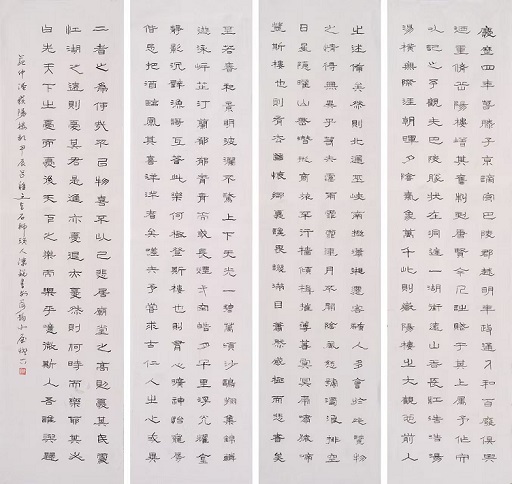 慶曆四年春滕子京謫守巴陵郡越明年政通人和百廢俱興
乃重修岳陽樓增其舊制刻唐賢今人詩賦于其上屬予作文
以記之予觀夫巴陵勝狀在洞庭一湖銜遠山吞長江浩浩湯
湯橫無際涯朝暉夕陰氣象萬千此則岳陽樓之大觀也前人
之述備矣然則北通巫峽南極瀟湘遷客騷人多會於此覽物
之情得無異乎若夫霪雨霏霏連月不開陰風怒號濁浪排空
日星隱曜山岳潛形商旅不行檣傾楫摧薄暮冥冥虎嘯猿啼
登斯樓也則有去國懷鄉憂讒畏譏滿目蕭然感極而悲者矣
至若春和景明波瀾不驚上下天光一碧萬頃沙鷗翔集錦鱗
游泳岸芷汀蘭郁郁青青而或長煙一空皓月千里浮光耀金
靜影沉璧漁歌互答此樂何極登斯樓也則有心曠神怡寵辱
偕忘把酒臨風其喜洋洋者矣嗟夫予嘗求古仁人之心或異
二者之為何哉不以物喜不以己悲居廟堂之高則憂其民處
江湖之遠則憂其君是進亦憂退亦憂然則何時而樂耶其必
曰先天下之憂而憂後天下之樂而樂乎噫微斯人吾誰與歸
范仲淹岳陽樓記甲辰